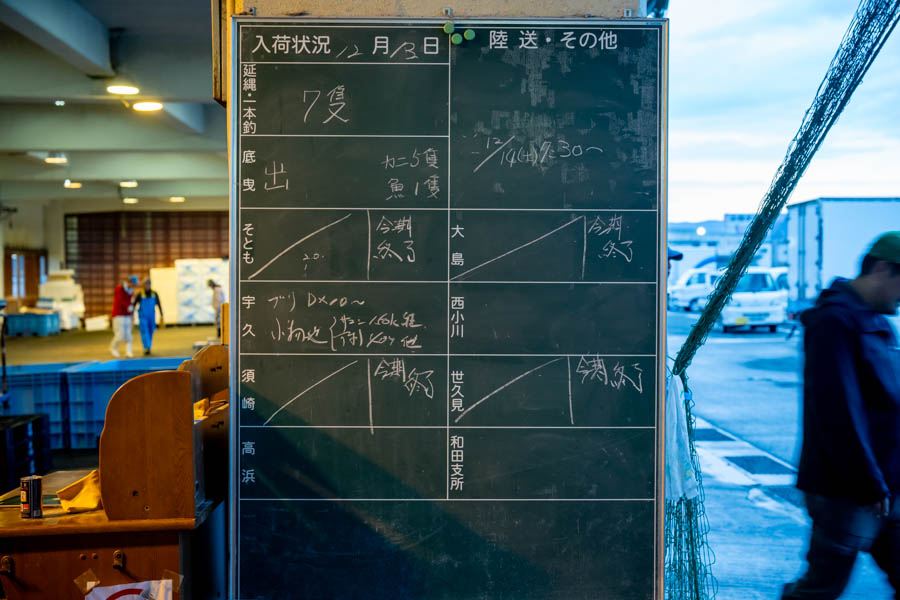 入荷状況 12月13日
陸送・その他
延縄・一本釣
7隻
12/14(土)7:30〜
底曳
出
カニ5隻
魚1隻
そとも
今期
終了
大島
今期
終了
宇久
ブリ
小物他
他
西小川
須崎
今期
終了
世久見
今期
終了
高浜
和田支所